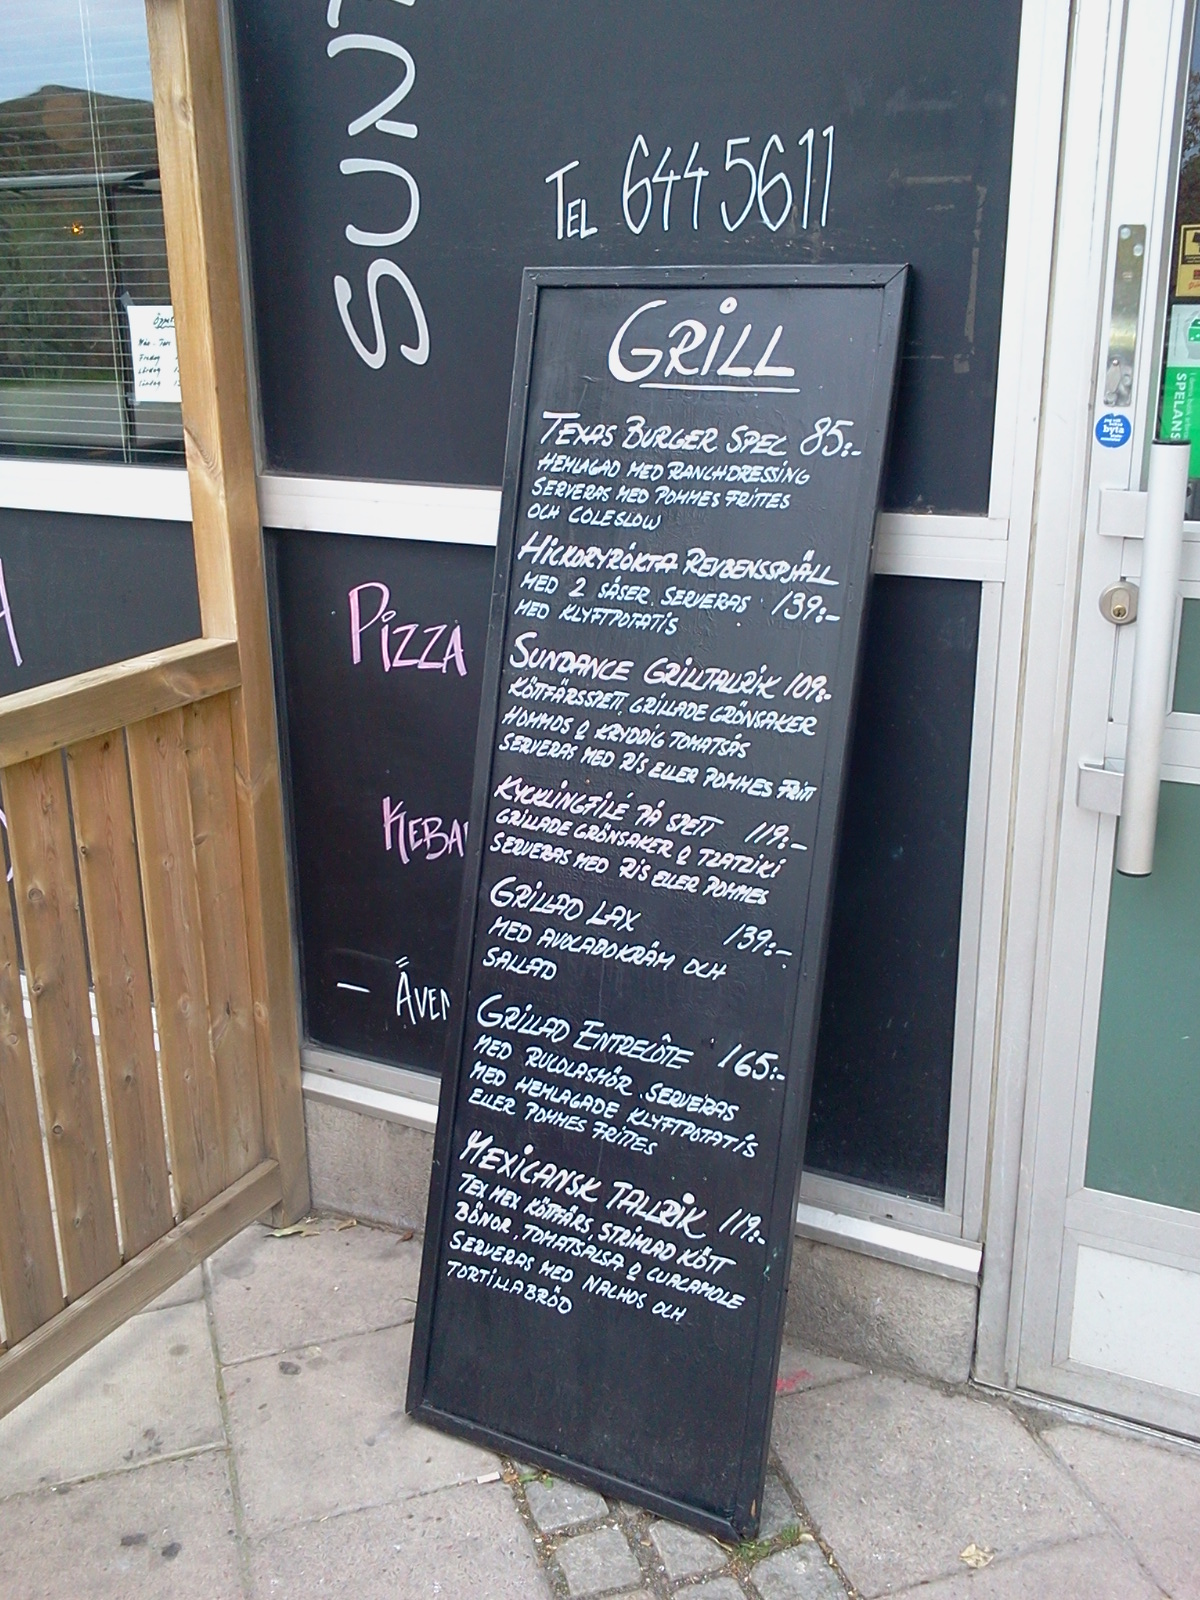 SUN
TEL 6445611
GRILL
TEXAS BURGER SPEC 85:-
HEMLAGAD MED RANCHDRESSING
SERVERAS MED POMMES FRITTES
OCH COLESLOW
HICKORYRÖKTA REVBENSSPJÄLL
MED 2 SÅSER. SERVERAS 139:-
MED KLYFTPOTATIS
SUNDANCE GRILLTALLRIK 109:-
KÖTTFÄRSSPETT, GRILLADE GRÖNSAKER
HOMMOS & KRYDDIG TOMATSÅS
SERVERAS MED RIS ELLER POMMES FRITT
KYCKLINGFILÉ PÅ SPETT 119:-
GRILLADE GRÖNSAKER & TZATZIKI
SERVERAS MED RIS ELLER POMMES
GRILLAD LAX 139:-
MED AVOCADOKRÄM OCH
SALLAD
GRILLAD ENTRECÔTE 165:-
MED RUCOLASMÖR. SERVERAS
MED HEMLAGADE KLYFTPOTATIS
ELLER POMMES FRITTES
MEXICANSK TALLRIK 119:-
TEX MEX KÖTTFÄRS, STRIMLAD KÖTT
BÖNOR, TOMATSALSA & GUACAMOLE
SERVERAS MED NACHOS OCH
TORTILLABRÖD
PIZZA
KEBA
— ÄVEN
Fredag
Lördag
Söndag
byta
SPELANS